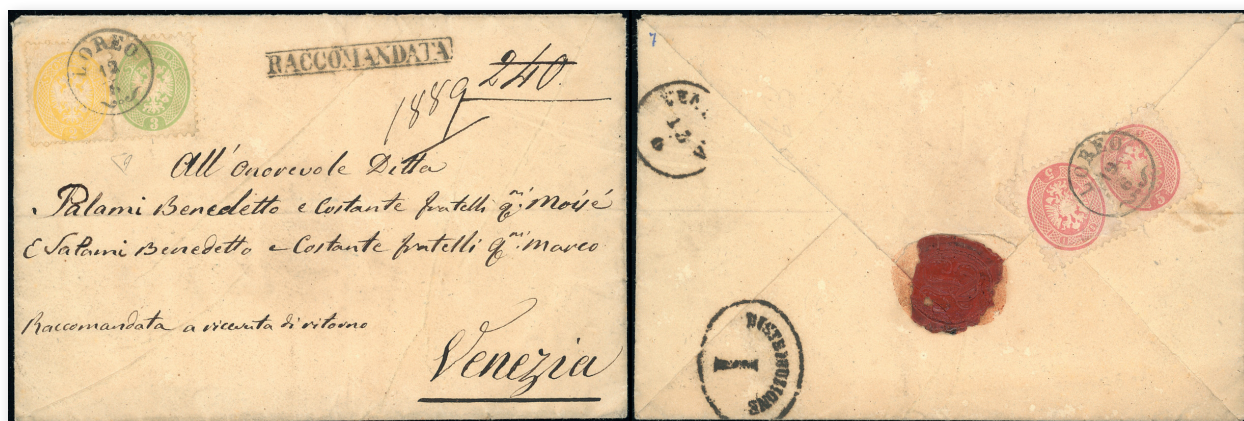 LOREO
12
3
RACCOMANDATA
240
1889
All' Onorevole Ditta
Palami Benedetto e Costante fratelli qm: Moisé
E Salami Benedetto e Costante fratelli qm: Marco
Raccomandata a ricevuta di ritorno
Venezia
7
13
LOREO
12
5
5
DISTRIBUZIONE
I